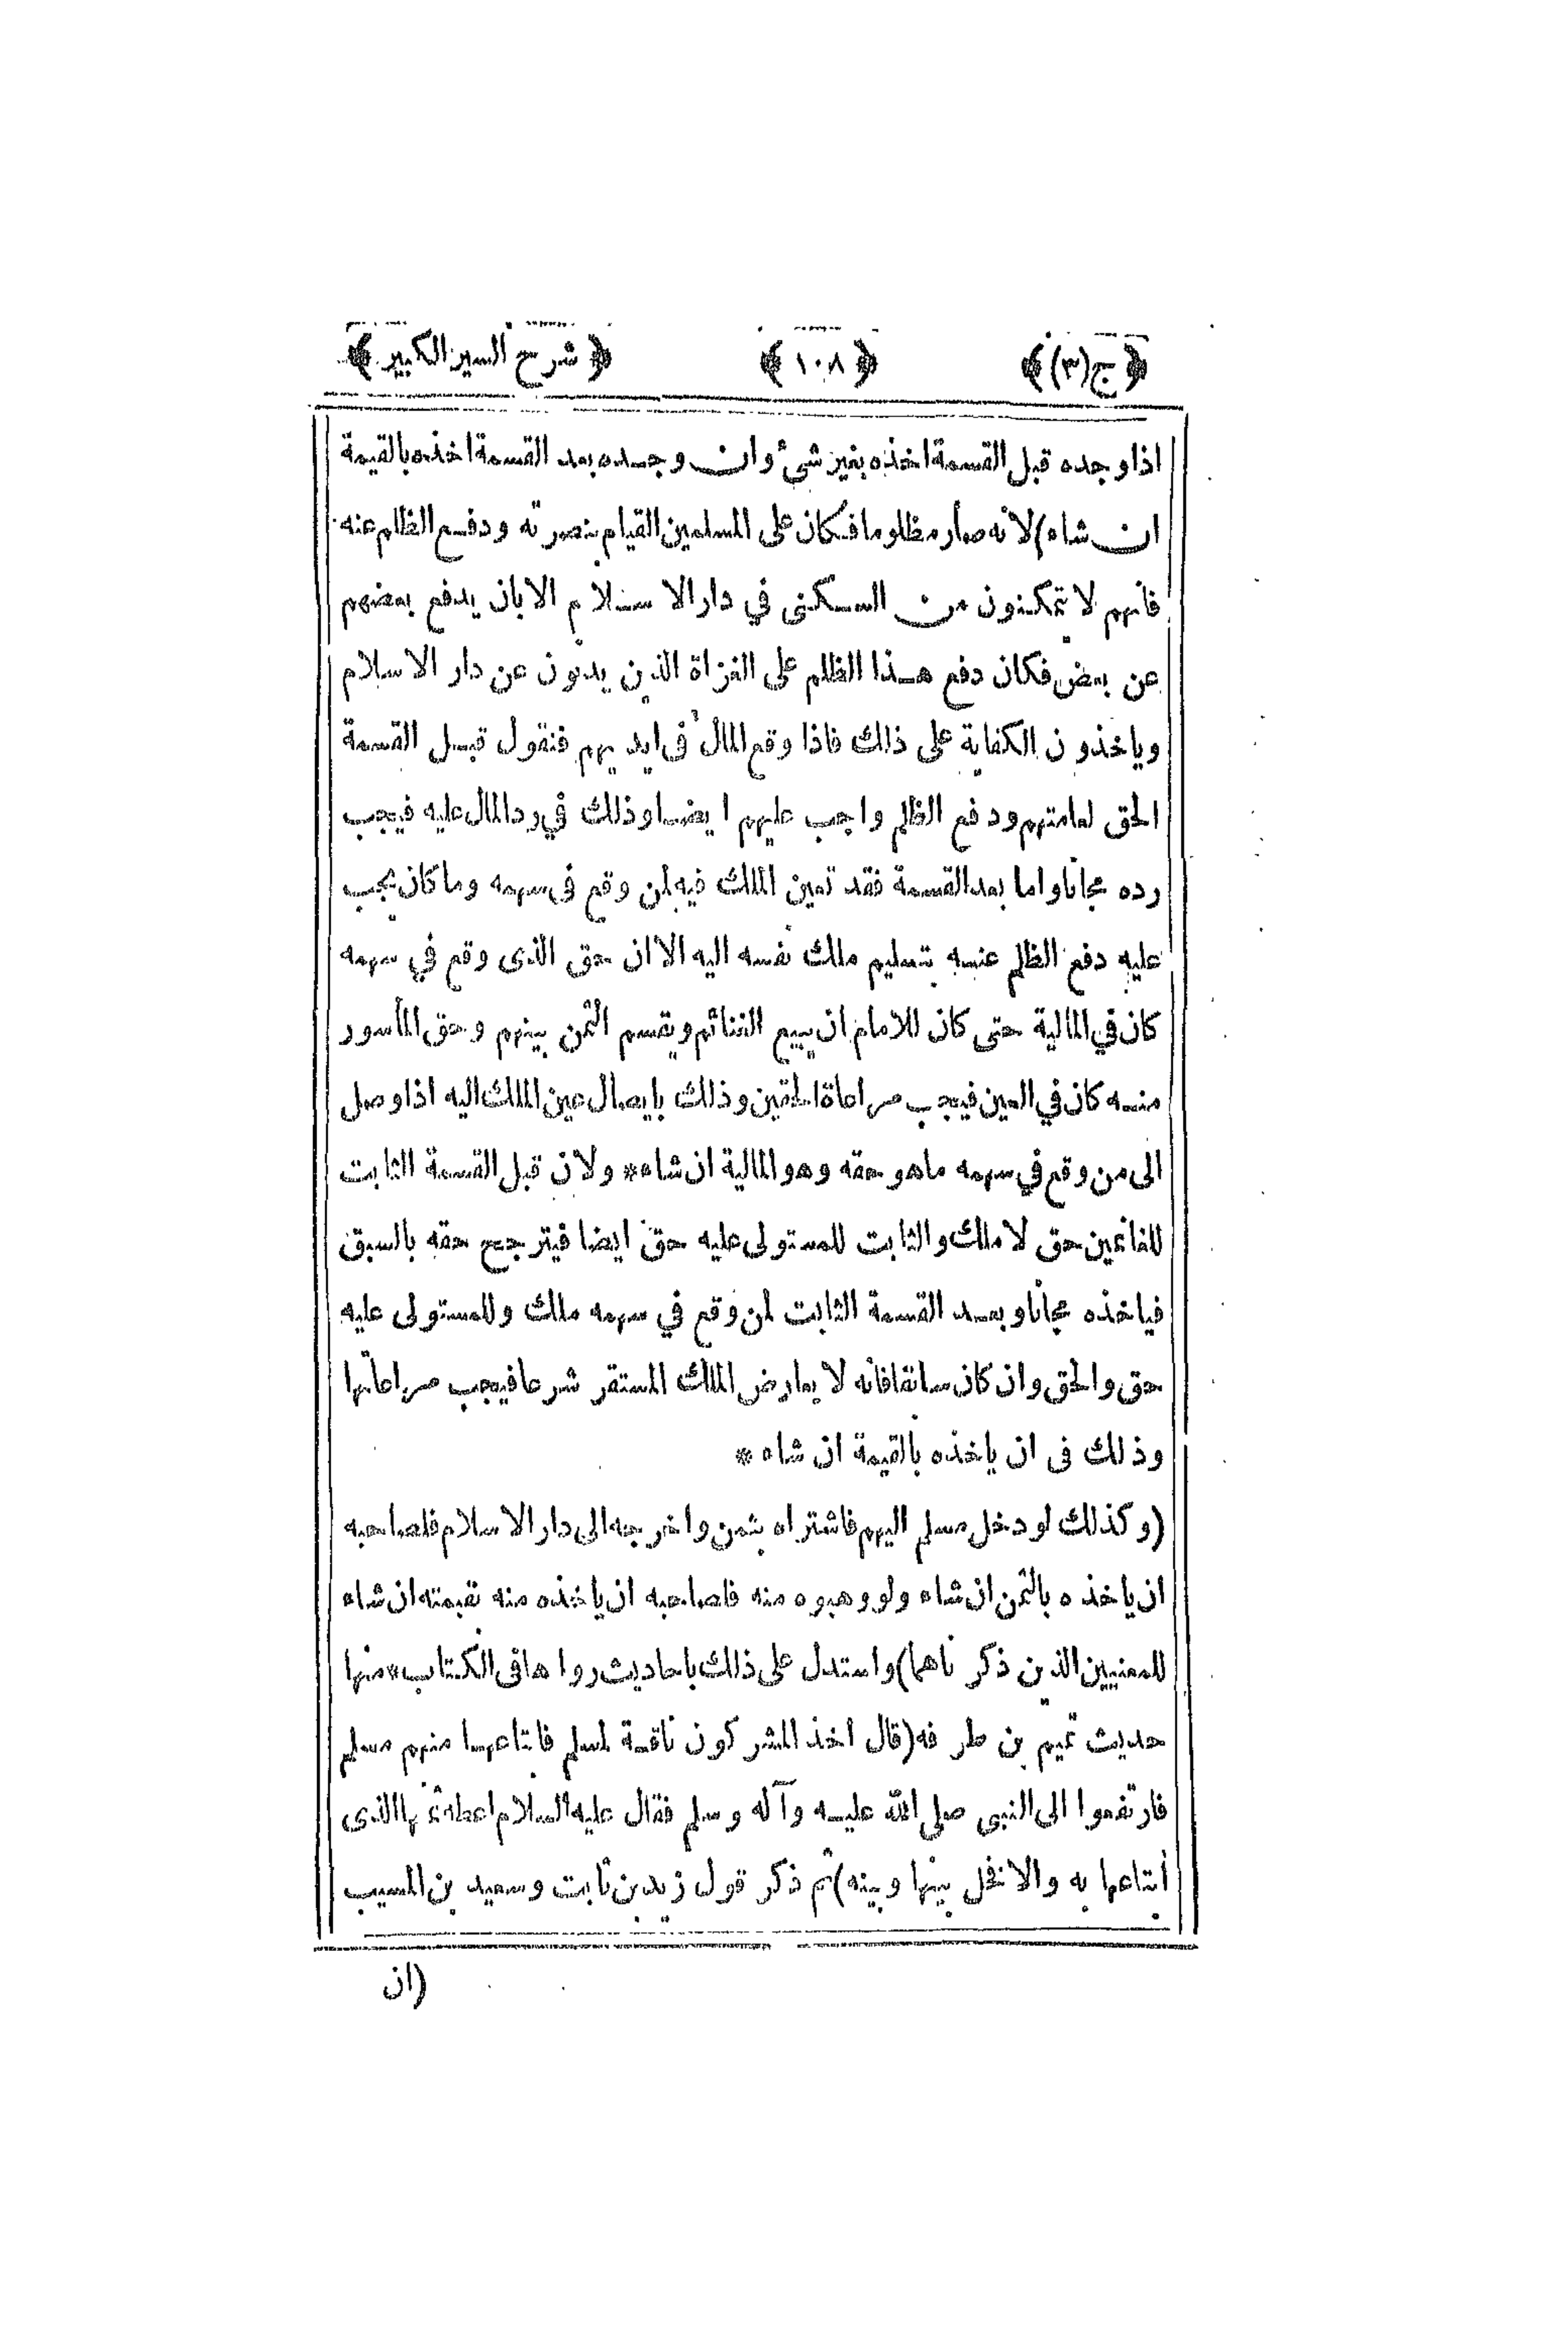 ﴿ج(٣)﴾ ﴿١٠٨﴾ ﴿شرح السير الكبير﴾
اذا وجده قبل القسمة اخذه بغير شئ وان وجده بعد القسمة اخذه بالقيمة
ان شاء) لانه صار مظلوما فكان على المسلمين القيام بنصرته ودفع الظلم عنه
فانهم لا يتمكنون من السكنى في دار الاسلام الا بان يدفع بعضهم
عن بعض فكان دفع هذا الظلم على الغزاة الذين يذبون عن دار الاسلام
وياخذون الكفاية على ذلك فاذا وقع المال فى ايديهم فنقول قبل القسمة
الحق لعامتهم ودفع الظلم واجب عليهم ايضا وذلك في رد المال عليه فيجب
رده مجانا واما بعد القسمة فقد تعين الملك فيه لمن وقع فى سهمه وما كان يجب
عليه دفع الظلم عنه بتسليم ملك نفسه اليه الا ان حق الذى وقع في سهمه
كان في المالية حتى كان للامام ان يبيع الغنائم ويقسم الثمن بينهم وحق المأسور
منه كان في العين فيجب مراعاة الحقين وذلك بايصال عين الملك اليه اذا وصل
الى من وقع في سهمه ما هو حقه وهو المالية ان شاء * ولان قبل القسمة الثابت
للغانمين حق لا ملك والثابت للمستولى عليه حق ايضا فيترجح حقه بالسبق
فياخذه مجانا وبعد القسمة الثابت لمن وقع في سهمه ملك وللمستولى عليه
حق والحق وان كان سابقا فانه لا يعارض الملك المستقر شرعا فيجب مراعاتها
وذلك فى ان ياخذه بالقيمة ان شاء *
(وكذلك لو دخل مسلم اليهم فاشتراه بثمن واخرجه الى دار الاسلام فلصاحبه
ان ياخذه بالثمن ان شاء ولو وهبوه منه فلصاحبه ان ياخذه منه بقيمته ان شاء
للمعنيين الذين ذكرناهما) واستدل على ذلك باحاديث رواها فى الكتاب * منها
حديث تميم بن طرفه (قال اخذ المشركون ناقة لمسلم فابتاعها منهم مسلم
فارتفعوا الى النبى صلى الله عليه وآله وسلم فقال عليه السلام اعطه ثمنها الذى
ابتاعها به والا نخل بينها وبينه) ثم ذكر قول زيد بن ثابت وسعيد بن المسيب
(ان